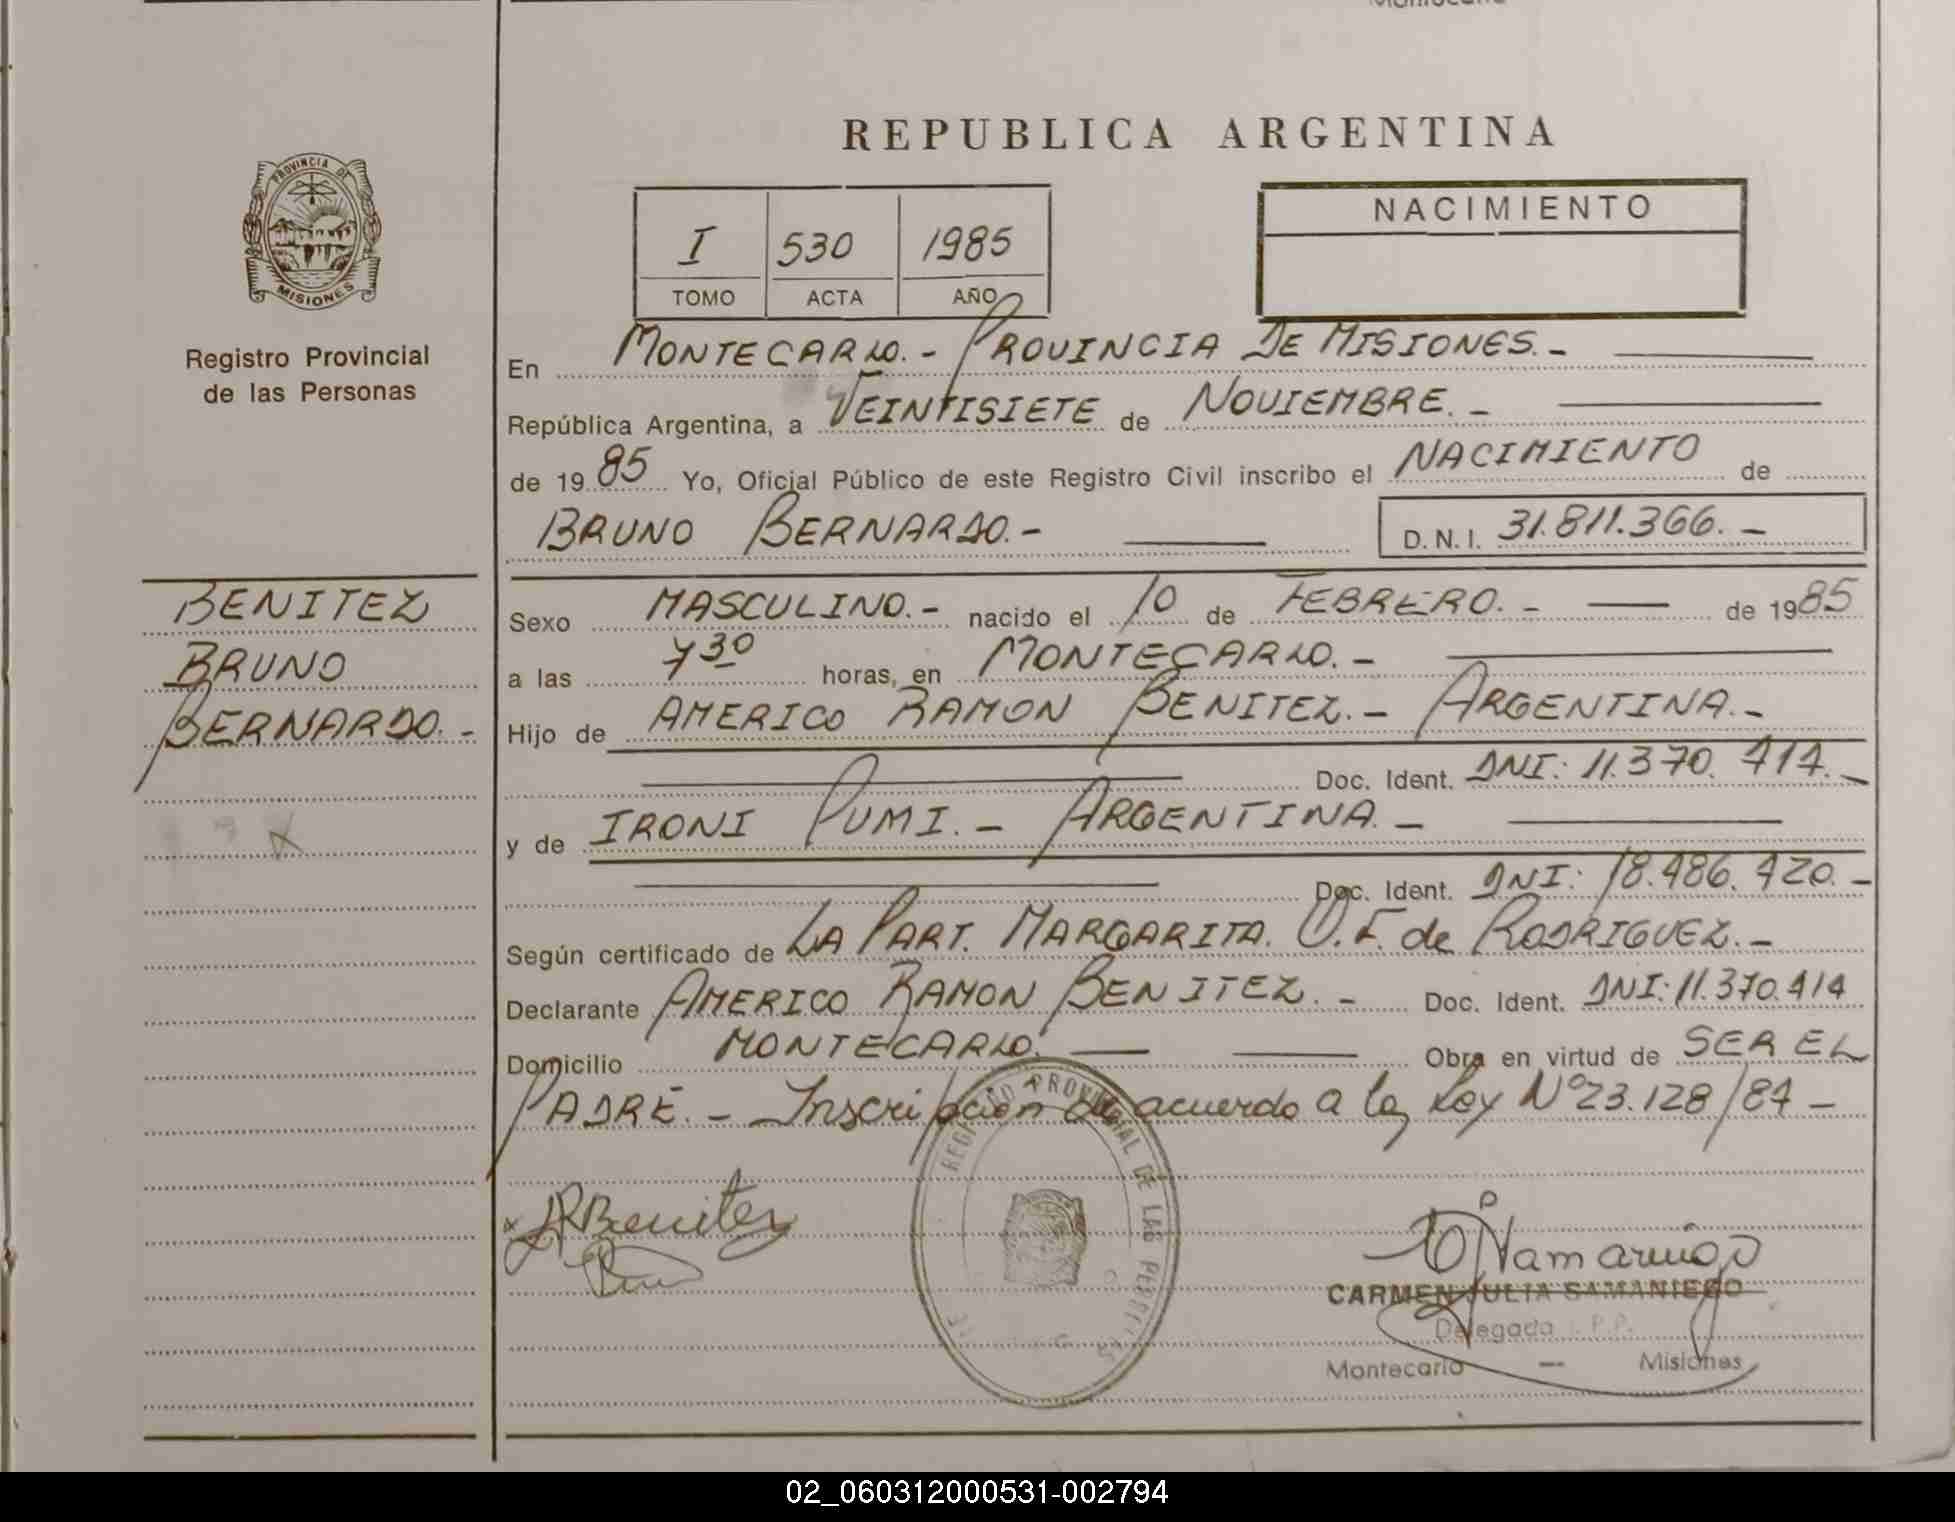 REPUBLICA ARGENTINA
PROVINCIA DE
MISIONES
Registro Provincial
de las Personas
I 530 1985
TOMO ACTA AÑO
NACIMIENTO
En MONTECARLO.- PROVINCIA DE MISIONES.-
República Argentina, a VEINTISIETE de NOVIEMBRE.-
de 1985 Yo, Oficial Público de este Registro Civil inscribo el NACIMIENTO de
BRUNO BERNARDO.- D.N.I. 31.811.366.-
BENITEZ
BRUNO
BERNARDO.-
Sexo MASCULINO.- nacido el 10 de FEBRERO.- de 1985
a las 7 30 horas, en MONTECARLO.-
Hijo de AMERICO RAMON BENITEZ.- ARGENTINA.-
Doc. Ident. DNI: 11.370.414.-
y de IRONI PUMI.- ARGENTINA.-
Doc. Ident. DNI: 18.486.420.-
Según certificado de LA PART. MARGARITA. O.F. de RODRIGUEZ.-
Declarante AMERICO RAMON BENITEZ.- Doc. Ident. DNI: 11.370.414
Domicilio MONTECARLO. Obra en virtud de SER EL
PADRE.- Inscripción de acuerdo a la Ley Nº 23.128/84-
REGISTRO PROVINCIAL DE LAS PERSONAS
ARBenitez
CARMEN JULIA SAMANIEGO
Delegada R.P.P.
Montecarlo — Misiones
02_060312000531-002794